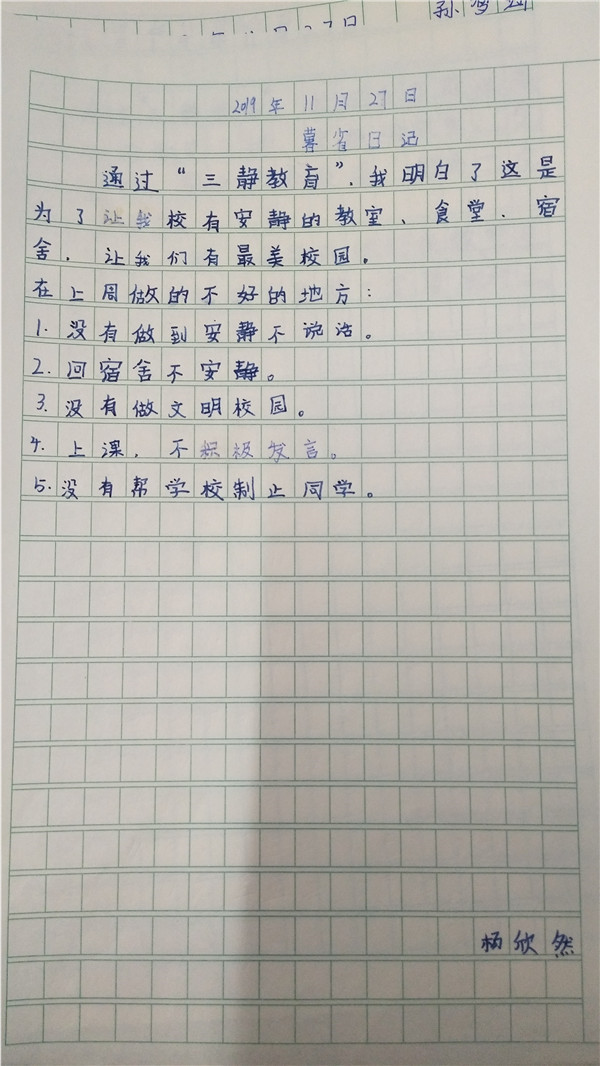 2019年11月27日
暮省日记
通过“三静教育”,我明白了这是
为了让我校有安静的教室、食堂、宿
舍,让我们有最美校园。
在上周做的不好的地方:
1.没有做到安静不说话。
2.回宿舍不安静。
3.没有做文明校园。
4.上课,不积极发言。
5.没有帮学校制止同学。
杨欣然